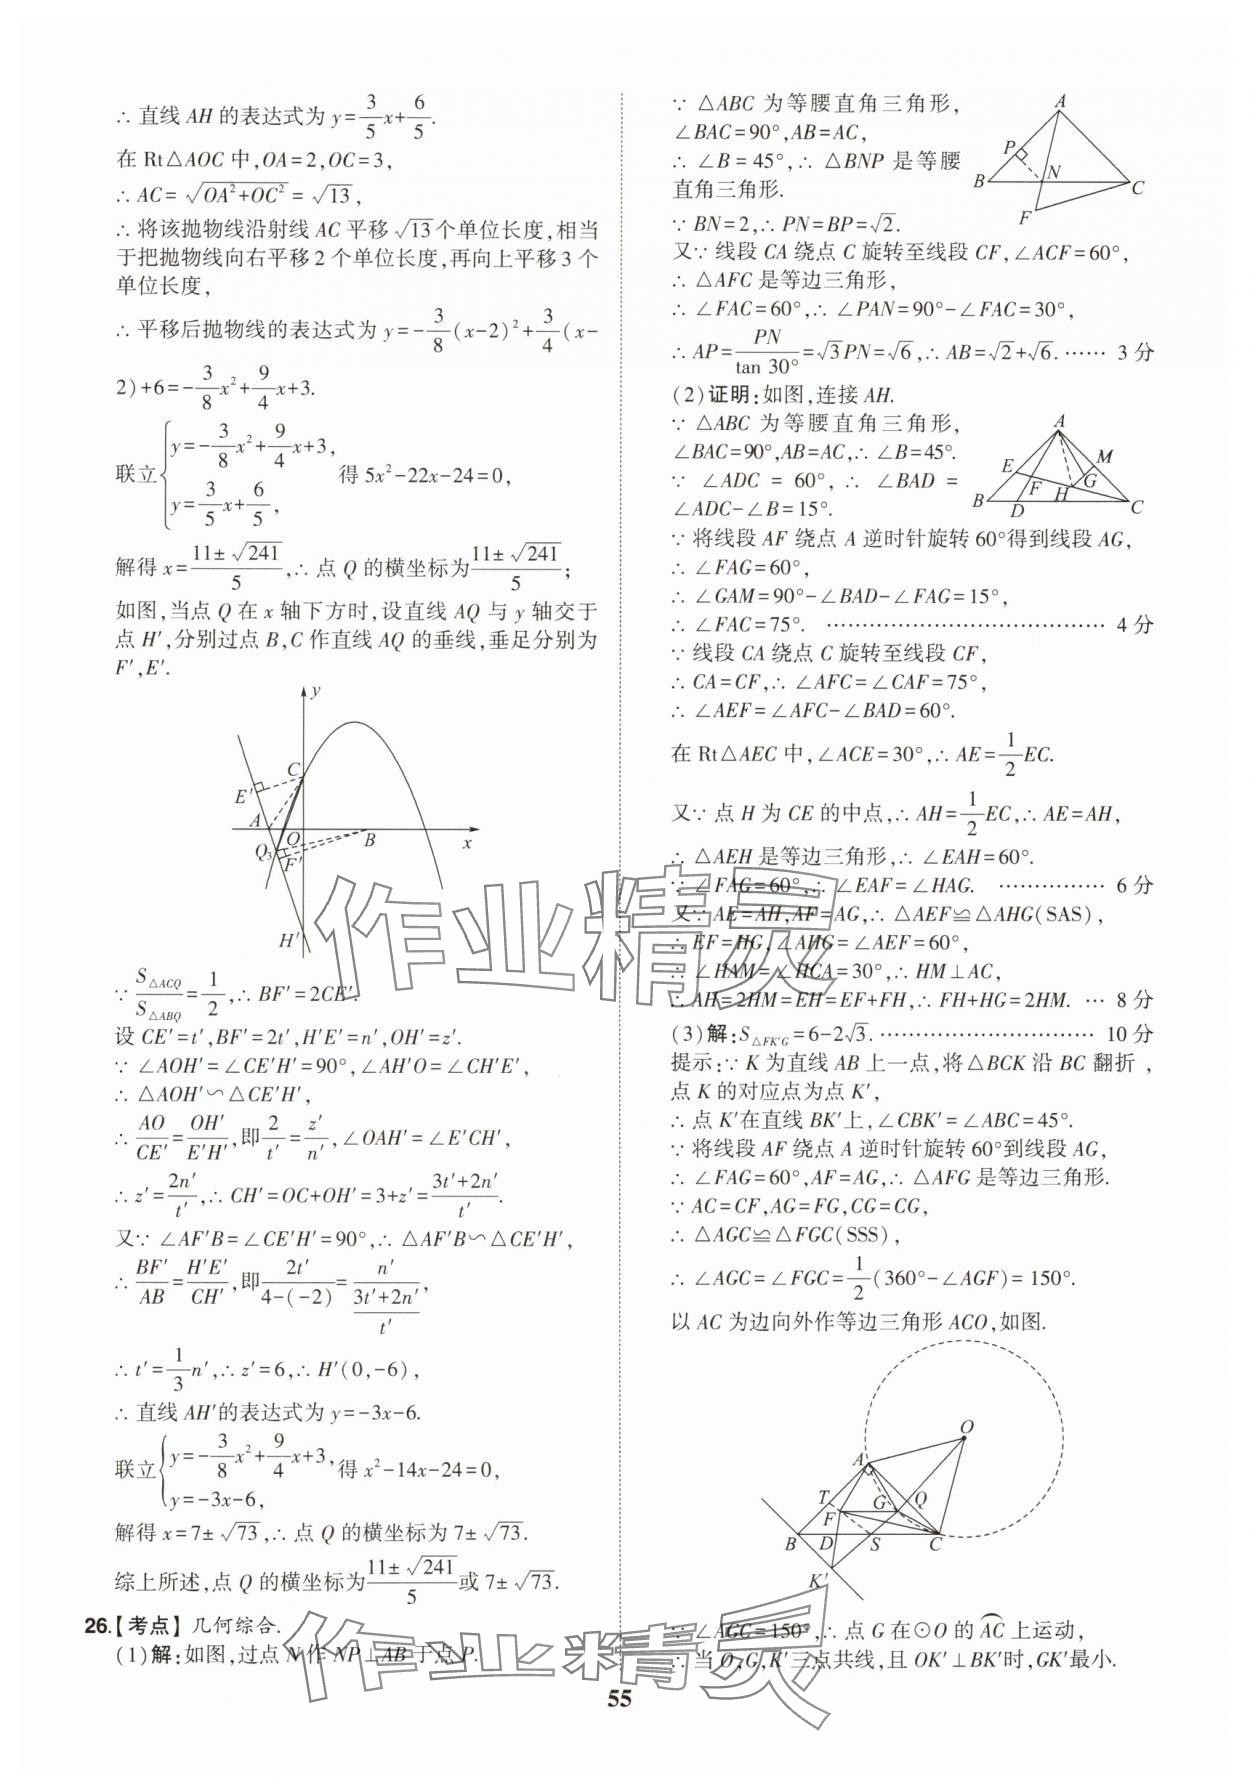 ∴ 直线 AH 的表达式为 y=3/5x+6/5.
在 Rt△AOC 中,OA=2,OC=3,
∴ AC=√(OA²+OC²)=√13,
∴ 将该抛物线沿射线 AC 平移 √13个单位长度,相当
于把抛物线向右平移 2 个单位长度,再向上平移 3 个
单位长度,
∴ 平移后抛物线的表达式为 y=-3/8(x-2)²+3/4(x-
2)+6=-3/8x²+9/4x+3.
联立{y=-3/8x²+9/4x+3, y=3/5x+6/5, 得 5x²-22x-24=0,
解得 x=(11±√241)/5,∴ 点 Q 的横坐标为(11±√241)/5;
如图,当点 Q 在 x 轴下方时,设直线 AQ 与 y 轴交于
点 H′,分别过点 B,C 作直线 AQ 的垂线,垂足分别为
F′,E′.
y
C
E′
A
O
B
x
Q₃
F′
H′
∵ S△ACQ/S△ABQ=1/2,∴ BF′=2CE′.
设 CE′=t′,BF′=2t′,H′E′=n′,OH′=z′.
∵ ∠AOH′=∠CE′H′=90°,∠AH′O=∠CH′E′,
∴ △AOH′∽△CE′H′,
∴ AO/CE′=OH′/E′H′,即2/t′=z′/n′,∠OAH′=∠E′CH′,
∴ z′=2n′/t′,∴ CH′=OC+OH′=3+z′=(3t′+2n′)/t′.
又∵ ∠AF′B=∠CE′H′=90°,∴ △AF′B∽△CE′H′,
∴ BF′/AB=H′E′/CH′,即2t′/(4-(-2))=n′/((3t′+2n′)/t′),
∴ t′=1/3n′,∴ z′=6,∴ H′(0,-6),
∴ 直线 AH′的表达式为 y=-3x-6.
联立{y=-3/8x²+9/4x+3, y=-3x-6, 得 x²-14x-24=0,
解得 x=7±√73,∴ 点 Q 的横坐标为 7±√73.
综上所述,点 Q 的横坐标为(11±√241)/5或 7±√73.
26.【考点】几何综合.
(1)解:如图,过点 N 作 NP⊥AB 于点 P.
∵ △ABC 为等腰直角三角形,
∠BAC=90°,AB=AC,
∴ ∠B=45°,∴ △BNP 是等腰
直角三角形.
A
P
B
N
C
F
∵ BN=2,∴ PN=BP=√2.
又∵ 线段 CA 绕点 C 旋转至线段 CF,∠ACF=60°,
∴ △AFC 是等边三角形,
∴ ∠FAC=60°,∴ ∠PAN=90°-∠FAC=30°,
∴ AP=PN/tan 30°=√3PN=√6,∴ AB=√2+√6. …… 3 分
(2)证明:如图,连接 AH.
∵ △ABC 为等腰直角三角形,
∠BAC=90°,AB=AC,∴ ∠B=45°.
∵ ∠ADC = 60°, ∴ ∠BAD =
∠ADC-∠B=15°.
A
E
M
F
G
B
D
H
C
∵ 将线段 AF 绕点 A 逆时针旋转 60°得到线段 AG,
∴ ∠FAG=60°,
∴ ∠GAM=90°-∠BAD-∠FAG=15°,
∴ ∠FAC=75°. …………………………………… 4 分
∵ 线段 CA 绕点 C 旋转至线段 CF,
∴ CA=CF,∴ ∠AFC=∠CAF=75°,
∴ ∠AEF=∠AFC-∠BAD=60°.
在 Rt△AEC 中,∠ACE=30°,∴ AE=1/2EC.
又∵ 点 H 为 CE 的中点,∴ AH=1/2EC,∴ AE=AH,
∴ △AEH 是等边三角形,∴ ∠EAH=60°.
∵ ∠FAG=60°,∴ ∠EAF=∠HAG. …………… 6 分
又∵ AE=AH,AF=AG,∴ △AEF≌△AHG(SAS),
∴ EF=HG,∠AHG=∠AEF=60°,
∴ ∠HAM=∠HCA=30°,∴ HM⊥AC,
∴ AH=2HM=EH=EF+FH,∴ FH+HG=2HM. … 8 分
(3)解:S△FK′G=6-2√3. ………………………… 10 分
提示:∵ K 为直线 AB 上一点,将△BCK 沿 BC 翻折,
点 K 的对应点为点 K′,
∴ 点 K′在直线 BK′上,∠CBK′=∠ABC=45°.
∵ 将线段 AF 绕点 A 逆时针旋转 60°到线段 AG,
∴ ∠FAG=60°,AF=AG,∴ △AFG 是等边三角形.
∵ AC=CF,AG=FG,CG=CG,
∴ △AGC≌△FGC(SSS),
∴ ∠AGC=∠FGC=1/2(360°-∠AGF)=150°.
以 AC 为边向外作等边三角形 ACO,如图.
O
A
T
G
Q
F
B
D
S
C
K′
∵ ∠AGC=150°,∴ 点 G 在⊙O 的 AC⌢ 上运动,
∴ 当 O,G,K′三点共线,且 OK′⊥BK′时,GK′最小.
55
作业精灵
作业精灵